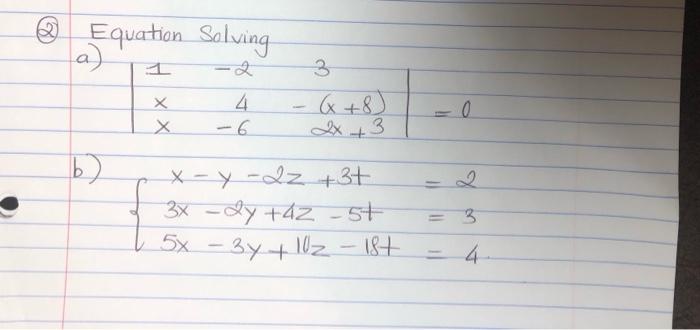 ② Equation Solving
a)
1 -2 3
x 4 - (x +8) = 0
x -6 2x + 3
b) x - y - 2z + 3t = 2
3x - 2y + 4z - 5t = 3
5x - 3y + 10z - 18t = 4.